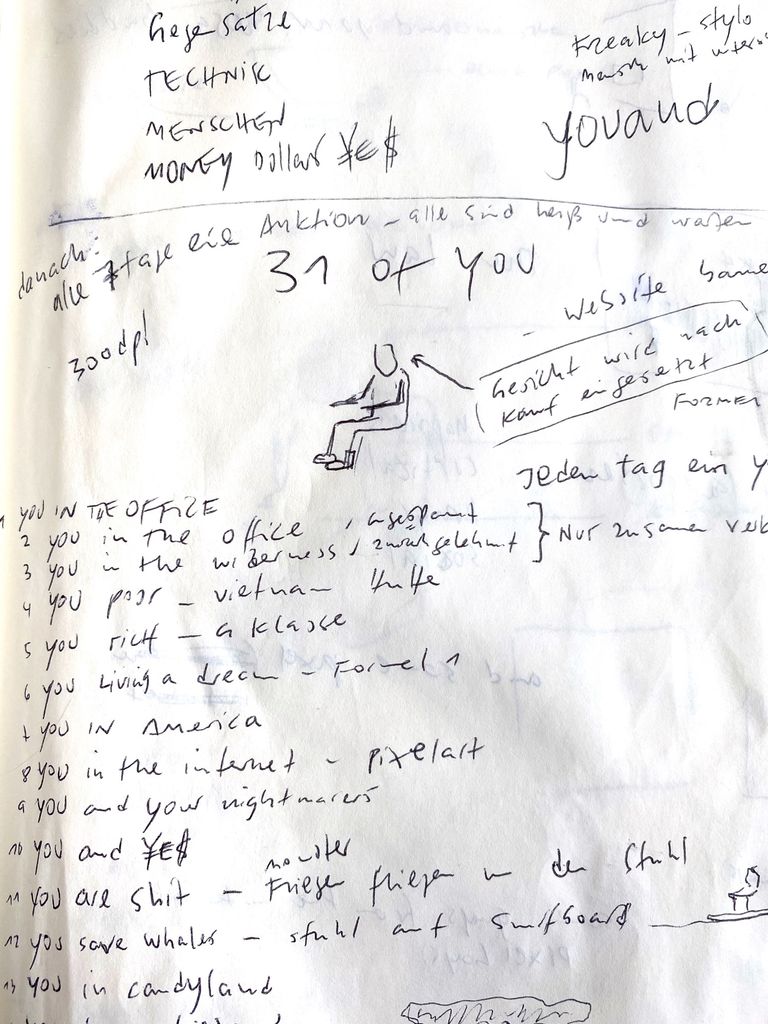 Gegesätze
TECHNIK
MENSCHEN
MONEY Dollar ¥€$
Freaky - stylo
Mensch mit
youand
danach:
alle 7 tage eine Auktion - alle sind heiß und warten
31 of you
300dpi
- website
Gesicht wird nach
Kauf eingesetzt
FORMEL
Jeden tag ein Y
1 YOU IN THE OFFICE
2 you in the office, angespannt
3 you in the wilderness, zurückgelehnt } Nur zusammen verk
4 you poor - vietnam Hütte
5 you rich - a klasse
6 you Living a dream - Formel 1
7 you IN America
8 you in the internet - pixelart
9 you and your nightmares
10 you and ¥€$
monster
11 you are shit - Fliegen fliegen um den Stuhl
12 you save whales - stuhl auf Surfboard
13 you in candyland